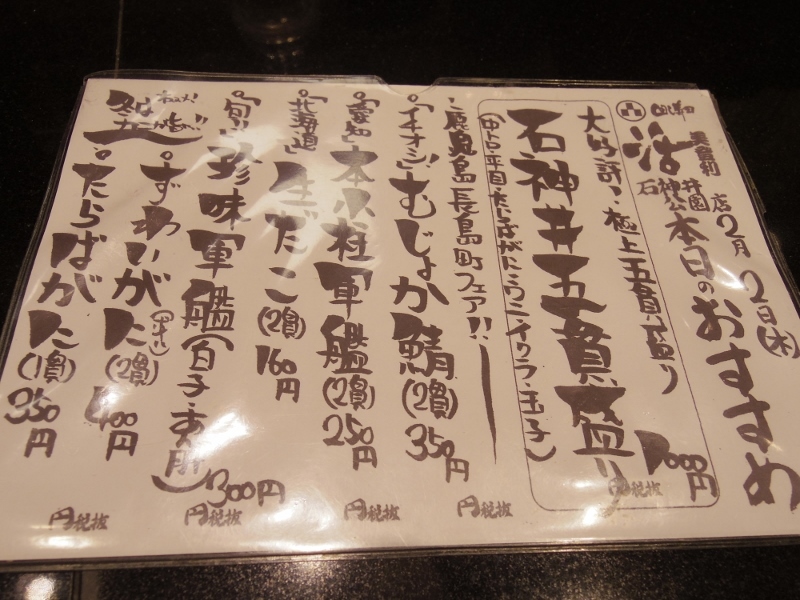 回転寿司
活
美登利
石神井公園店
2月2日(木)
本日のおすすめ
大好評!極上五貫盛り
石神井五貫盛り 1000円
(中トロ・平目・たらばがに・ウニイクラ・玉子)
鹿児島長島町フェア!!
『イチオシ』むじょか鯖(2貫)350円
『愛知』本小柱軍艦(2貫)250円
『北海道』生だこ(2貫)160円
『旬』珍味軍艦(白子・あん肝)300円
冬は
カニが旨い!!
ずわいがに(2貫)400円
たらばがに(1貫)350円
円税抜
円税抜
円税抜
円税抜
円税抜